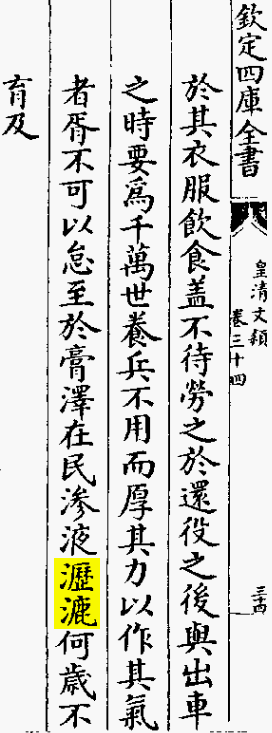 欽定四庫全書
皇清文穎
卷三十四
三十四
於其衣服飲食盖不待勞之於還役之後與出車
之時要爲千萬世養兵不用而厚其力以作其氣
者胥不可以怠至於膏澤在民滲液瀝漉何歲不
育及